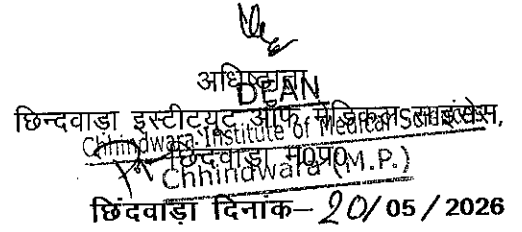 अधिष्ठाता
DEAN
छिन्दवाड़ा इंस्टीट्यूट ऑफ मेडिकल साइंसेस,
Chhindwara Institute of Medical Sciences
छिंदवाड़ा म0प्र0
Chhindwara (M.P.)
छिंदवाड़ा दिनांक– 20/05/2026